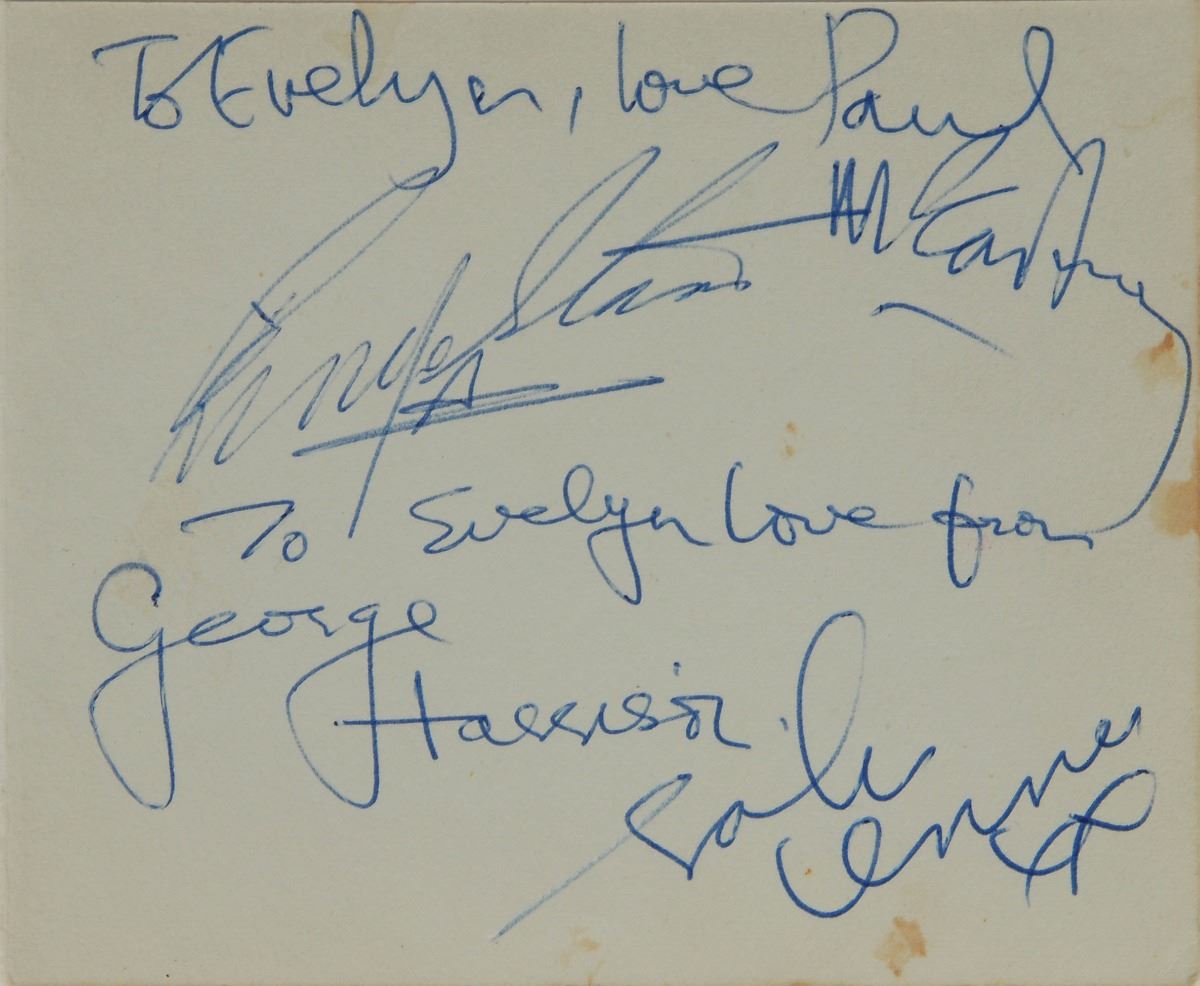 To Evelyn, love Paul
McCartney
Ringo Starr
To Evelyn love from
George
Harrison.
John Lennon